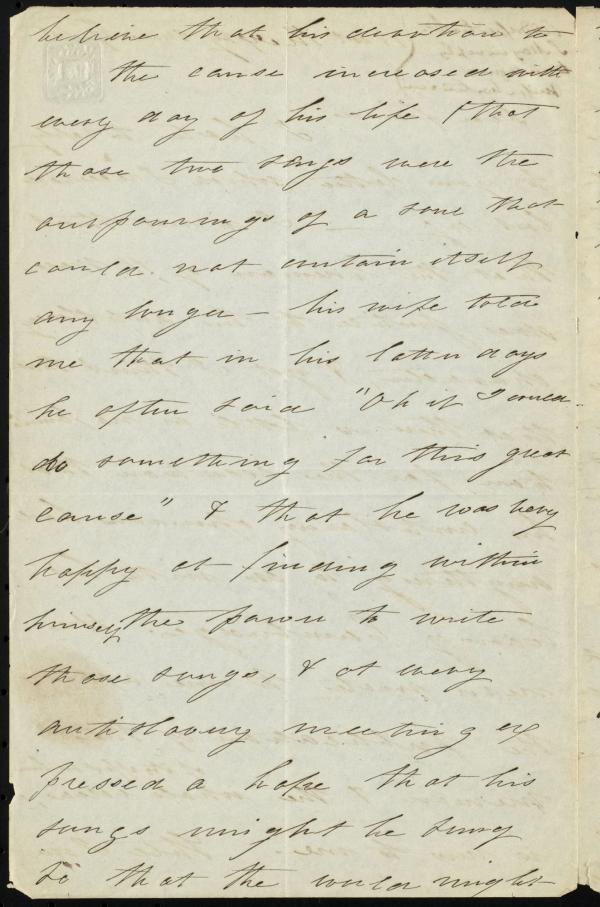 believe that his devotion to
the cause increased with
every day of his life & that
those two songs were the
outpourings of a soul that
could not contain itself
any longer – his wife told
me that in his latter days
he often said "Oh if I could
do something for this great
cause" & that he was very
happy at finding within
himself the power to write
those songs, & at every
antislavery meeting ex
pressed a hope that his
songs might be sung
so that the world might